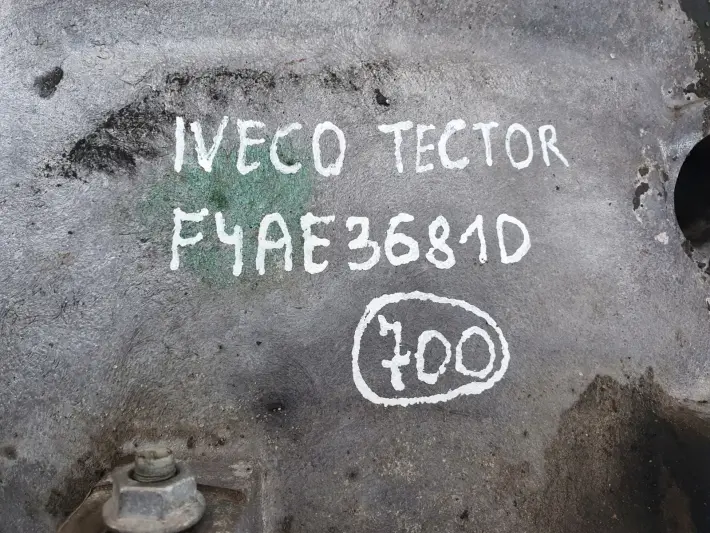 IVECO TECTOR
F4AE3681D
700